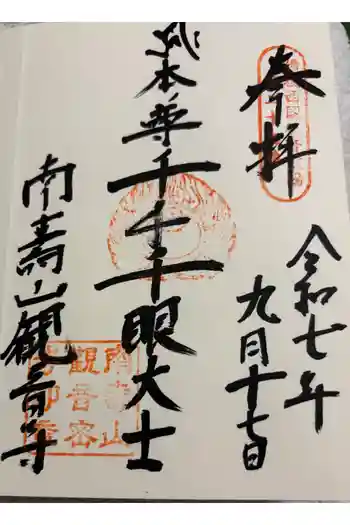 奉拝
令和七年
九月十七日
本尊千手千眼大士
南壽山観音寺